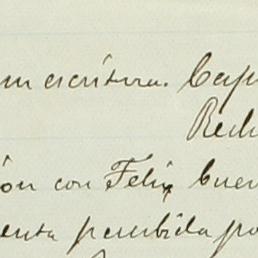 en escritura. Cap
Rech
ión con Felix Cuer
enta percibida po